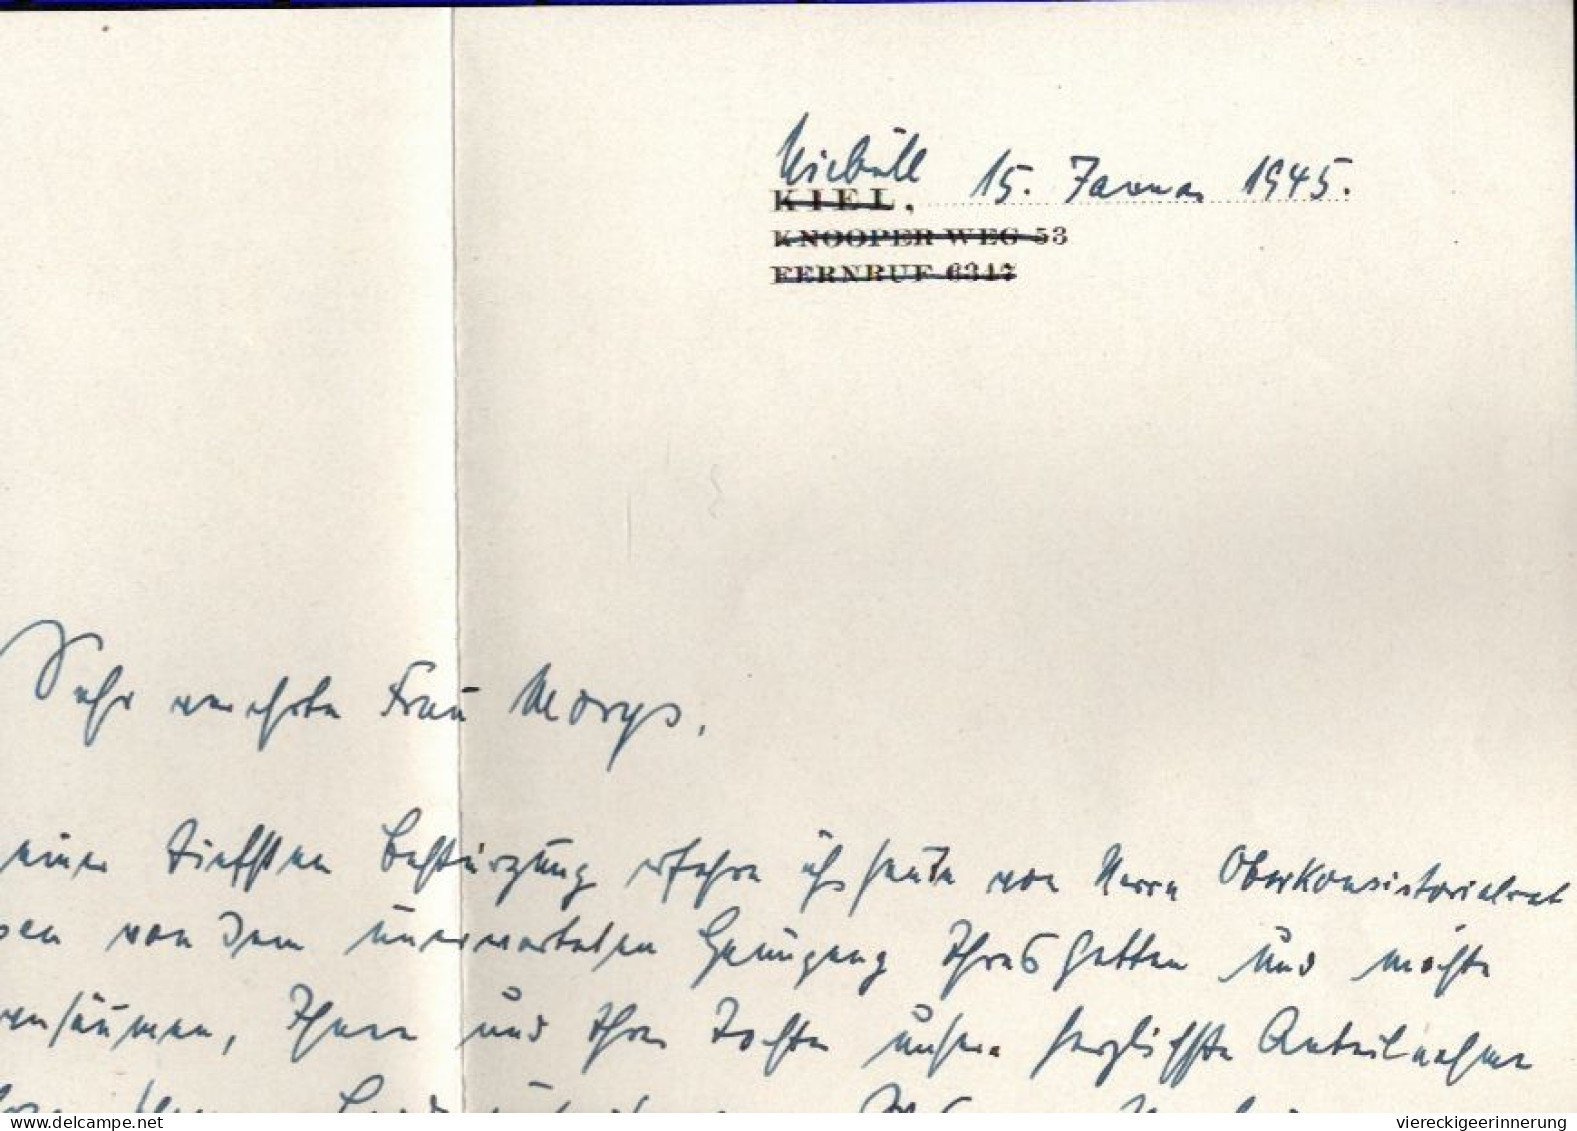 Niebüll 15. Januar 1945.
KIEL,
KNOOPER WEG 53
FERNRUF 6347
Sehr verehrte Frau Morys,
einer tiefsten Bestürzung erfahre ich heute von Herrn Oberkonsistorialrat
von dem unerwarteten Heimgang Ihres Gatten und möchte
versäumen, Ihnen und Ihrer Tochter unsere herzlichste Anteilnahme
delcampe.net
viereckigeerinnerung